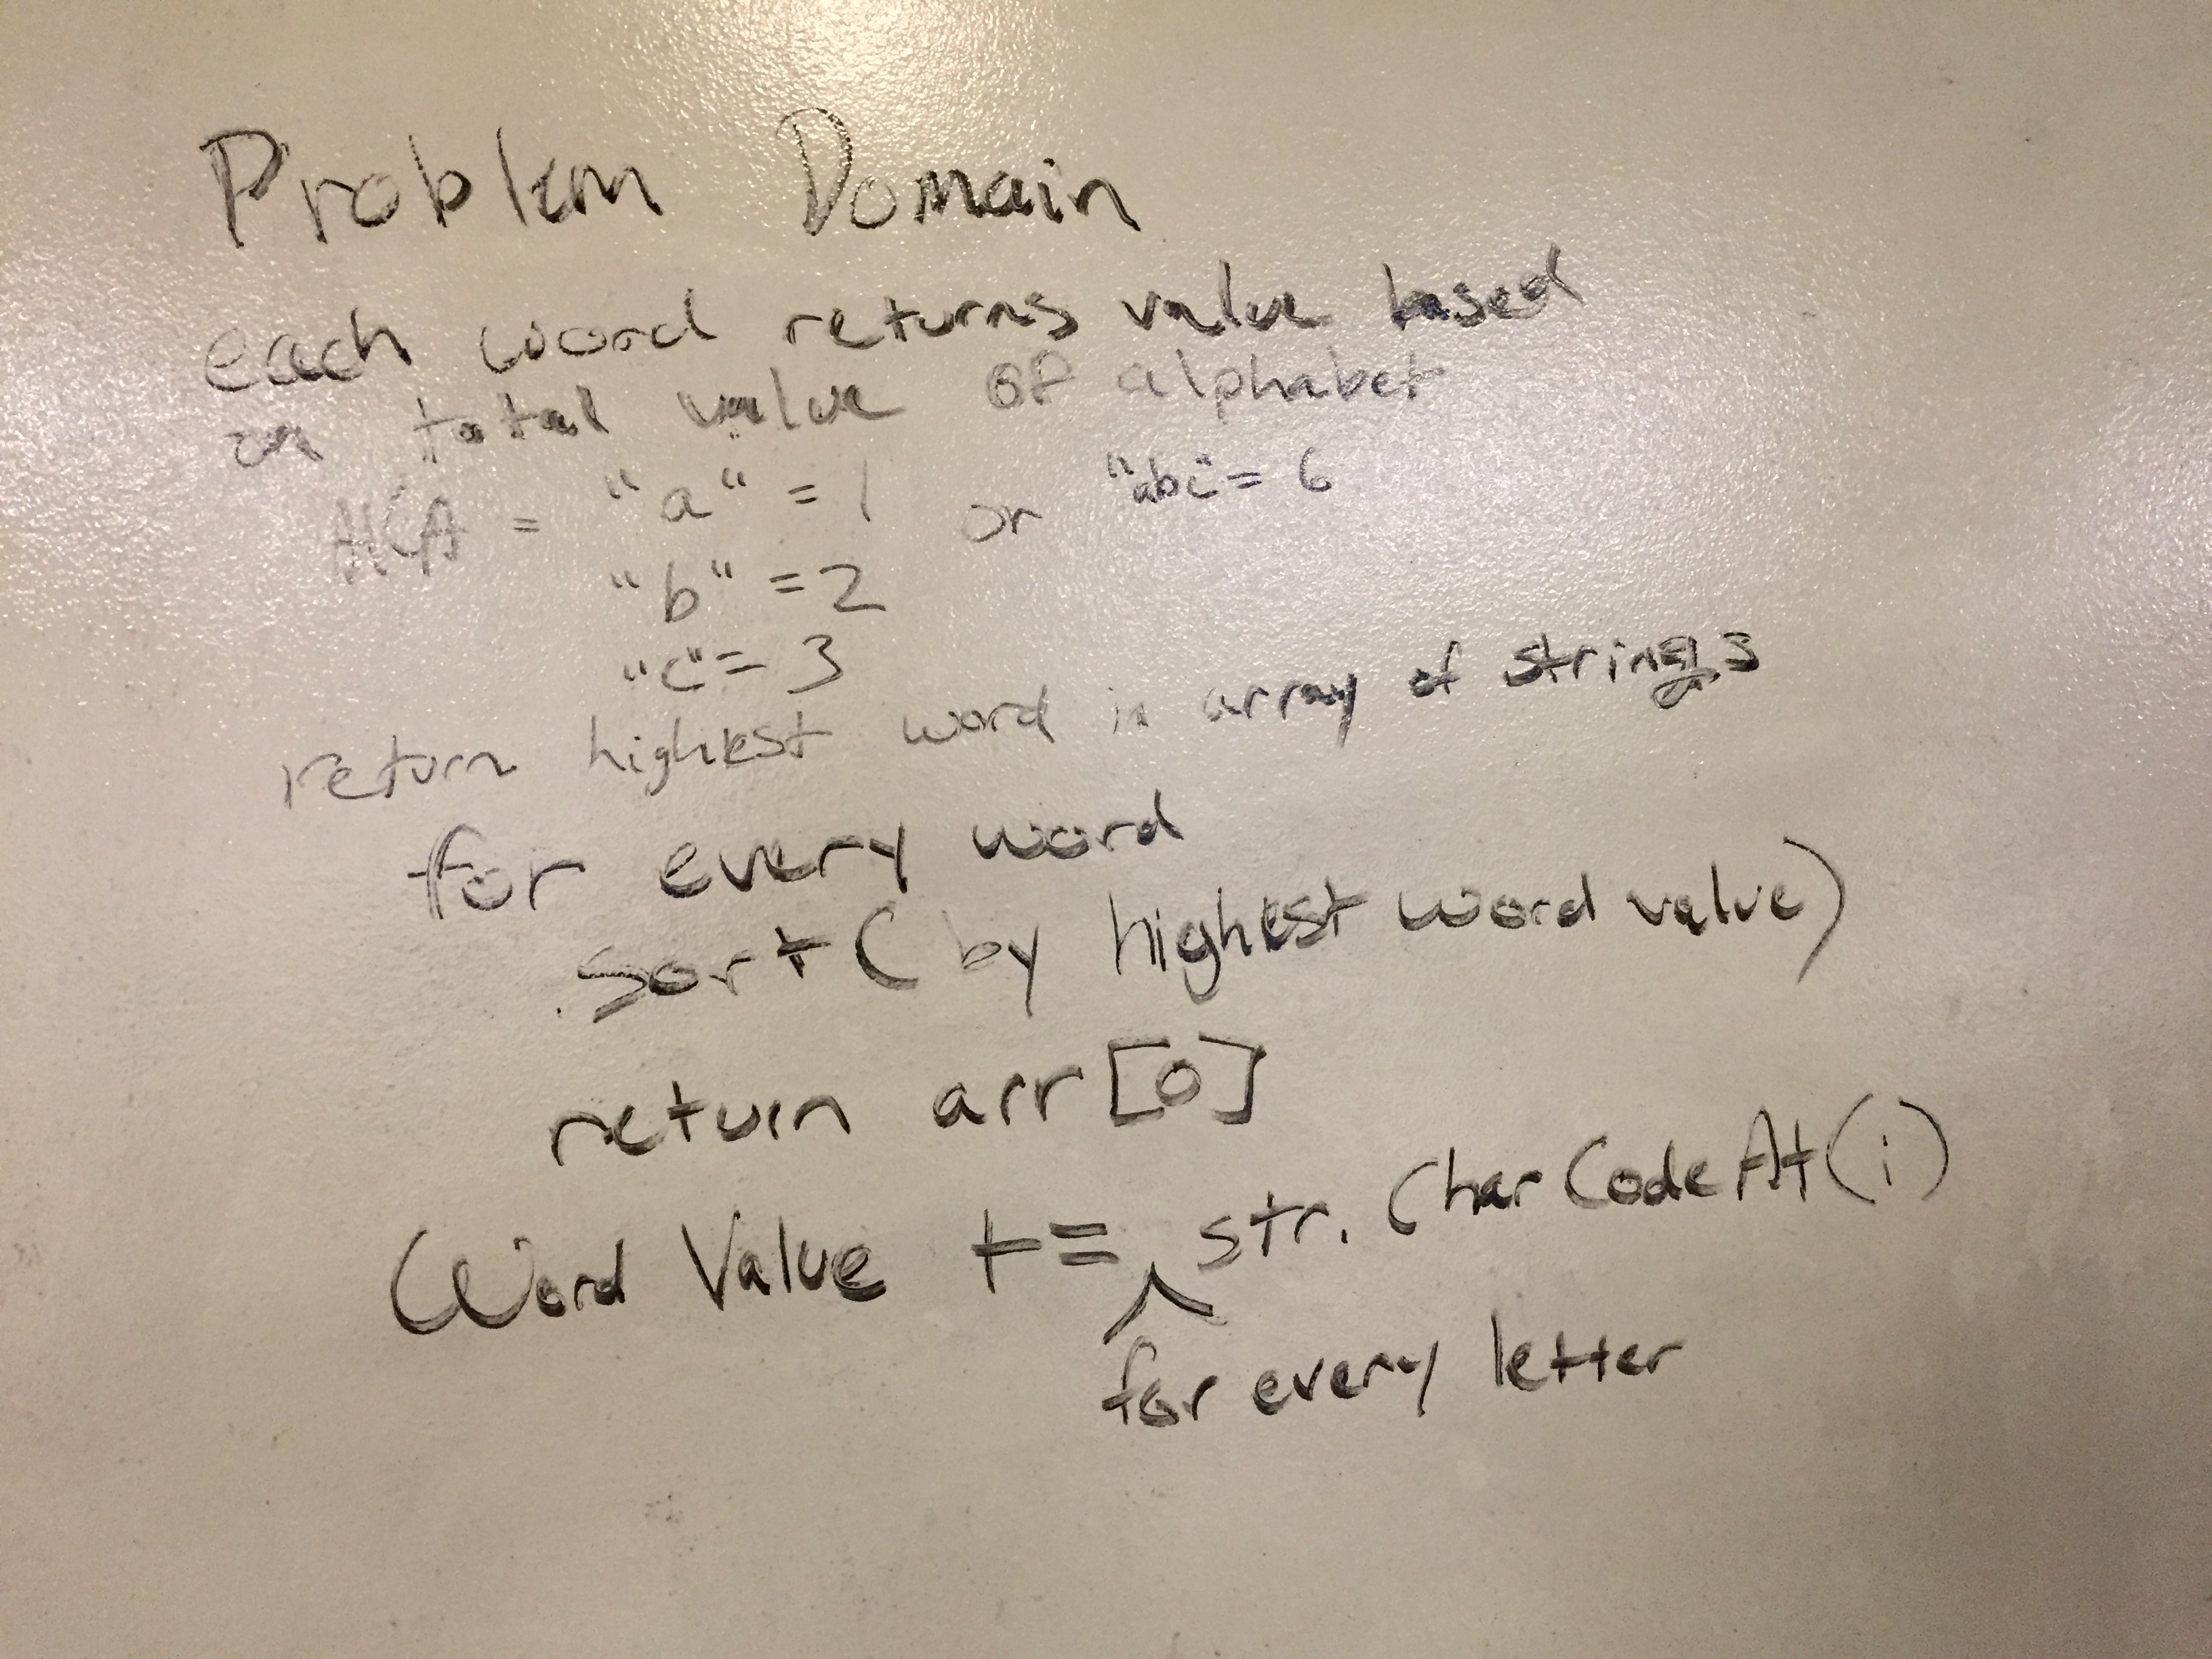 Problem Domain
each word returns value based
on total value of alphabet
= "a" = 1 or "abc" = 6
"b" = 2
"c" = 3
return highest word in array of strings
for every word
.sort( by highest word value)
return arr[0]
Word Value += str.charCodeAt(i)
^
for every letter